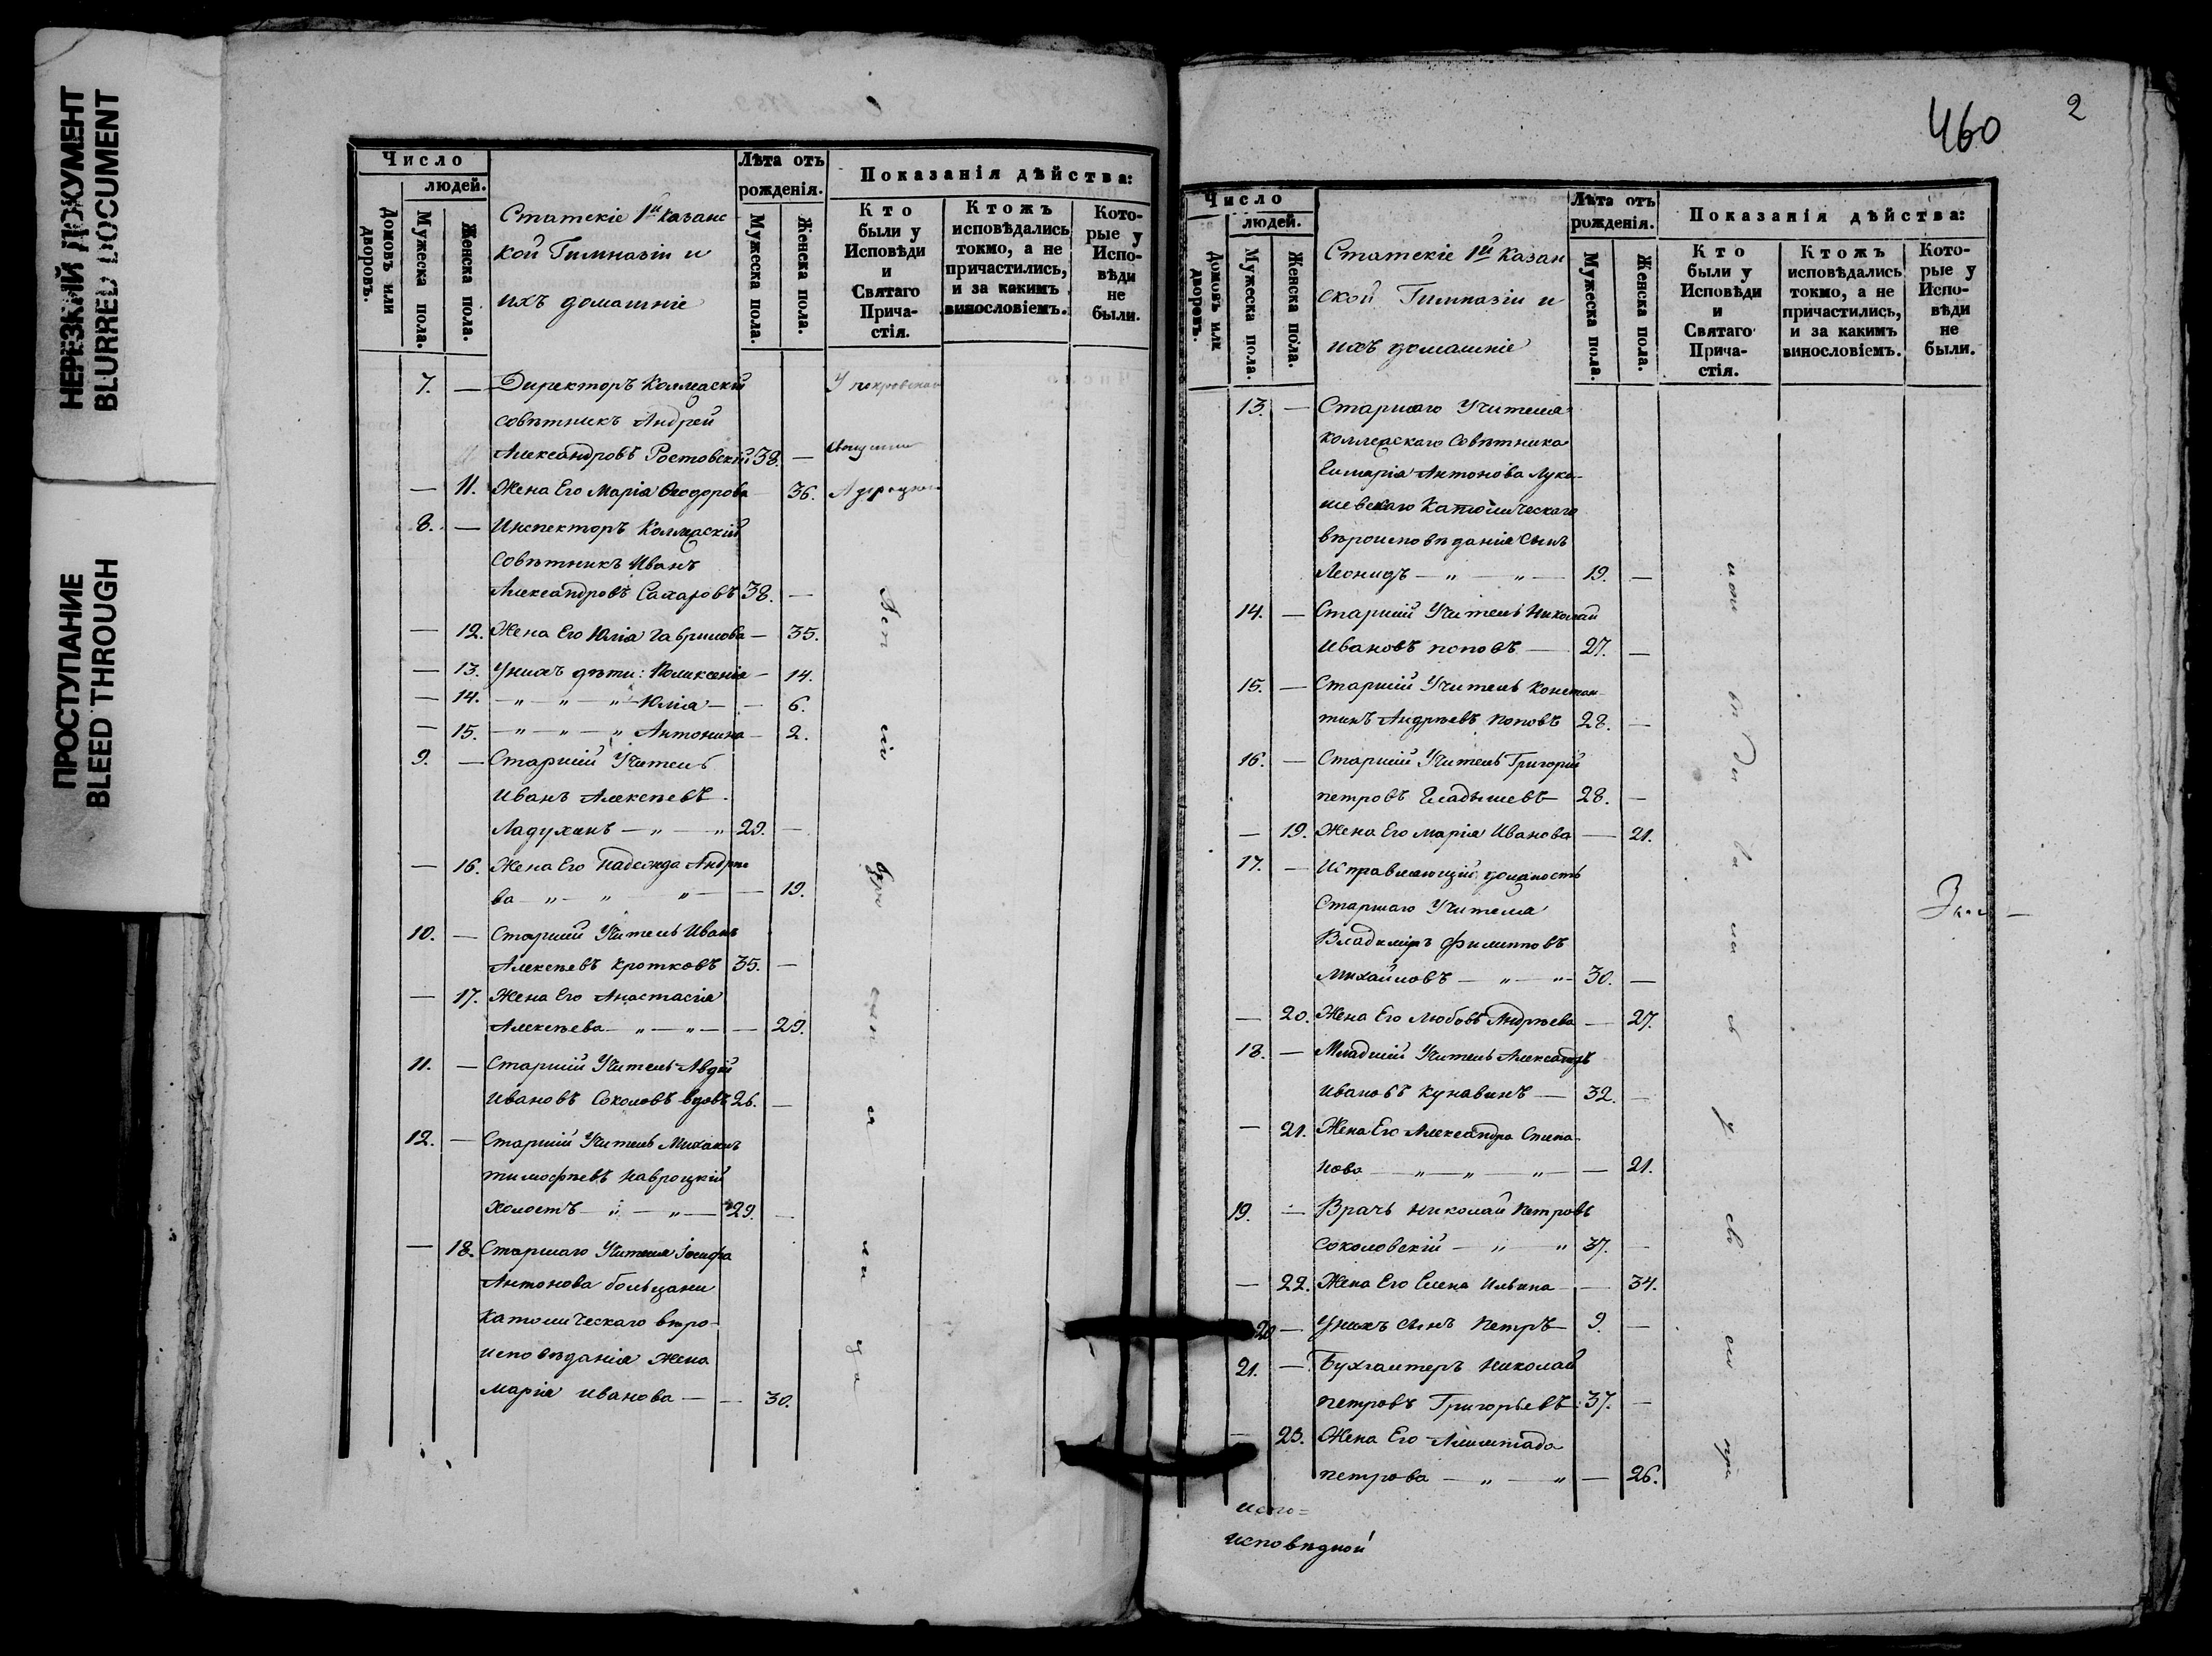 НЕРЕЗКИЙ ДОКУМЕНТ
BLURRED DOCUMENT
ПРОСТУПАНИЕ
BLEED THROUGH
Число
людей.
Домовъ или дворовъ.
Мужеска пола.
Женска пола.
Статскіе 1й Казанс
кой Гимназіи и
ихъ домашніе
Лѣта отъ
рожденія.
Мужеска пола.
Женска пола.
Показанія дѣйства:
Кто
были у
Исповѣди
и
Святаго
Прича-
стія.
Ктожъ
исповѣдались
токмо, а не
причастились,
и за какимъ
винословіемъ.
Кото-
рые у
Испо-
вѣди
не
были.
7. — Директоръ Коллежскій
совѣтникъ Андрей
Александровъ Ростовскій 38. —
— 11. Жена Его Марія Ѳеодорова — 36.
8. — Инспекторъ Коллежскій
Совѣтникъ Иванъ
Александровъ Сахаровъ 38. —
— 12. Жена Его Юлія Гаврилова — 35.
— 13. У нихъ дѣти: Поликсенія — 14.
— 14. — " — " — " Юлія — — 6.
— 15. — " — " — " Антонина — 2.
9. — Старшій Учитель
Иванъ Алексѣевъ
Ладухинъ — " — " 29. —
— 16. Жена Его Надежда Андрее
ва — " — " — " — — 19.
10. — Старшій Учитель Иванъ
Алексѣевъ Кротковъ 35. —
— 17. Жена Его Анастасія
Алексѣева — " — " — — 29.
11. — Старшій Учитель Авдій
Ивановъ Соколовъ вдовъ 26. —
12. — Старшій Учитель Михаилъ
Тимофѣевъ Навроцкій
Холостъ — " — " — 29. —
— 18. Старшаго Учителя Іосифа
Антонова Больцани
Католическаго вѣро-
исповѣданія жена
Марія Иванова — — 30.
460
2
Число
людей.
Домовъ или дворовъ.
Мужеска пола.
Женска пола.
Статскіе 1й Казан
ской Гимназіи и
ихъ домашніе
Лѣта отъ
рожденія.
Мужеска пола.
Женска пола.
Показанія дѣйства:
Кто
были у
Исповѣди
и
Святаго
Прича-
стія.
Ктожъ
исповѣдались
токмо, а не
причастились,
и за какимъ
винословіемъ.
Кото-
рые у
Испо-
вѣди
не
были.
13. — Старшаго Учителя
Коллежскаго Совѣтника
Антонова Лука-
шевскаго Католическаго
вѣроисповѣданія сынъ
Леонидъ — " — " — 19. —
14. — Старшій Учитель Николай
Ивановъ Поповъ — 27. —
15. — Старшій Учитель Констан-
тинъ Андрѣевъ Поповъ 28. —
16. — Старшій Учитель Григорій
Петровъ Гладышевъ 28. —
— 19. Жена Его Марія Иванова — 21.
17. — Исправляющій должность
Старшаго Учителя
Владиміръ Филипповъ
Михайловъ — " — " 30. —
— 20. Жена Его Любовь Андрѣева — 27.
18. — Младшій Учитель Александръ
Ивановъ Кунавинъ — 32. —
— 21. Жена Его Александра Степа-
нова — " — " — " — 21.
19. — Врачъ Николай Петровъ
Соколовскій — " — " 37. —
— 22. Жена Его Елена Ильина — 34.
20 — У нихъ сынъ Петръ 9. —
21. — Бухгалтеръ Николай
Петровъ Григорьевъ 37. —
— 23. Жена Его
Петрова — " — " — 26.
испо=
исповѣдной